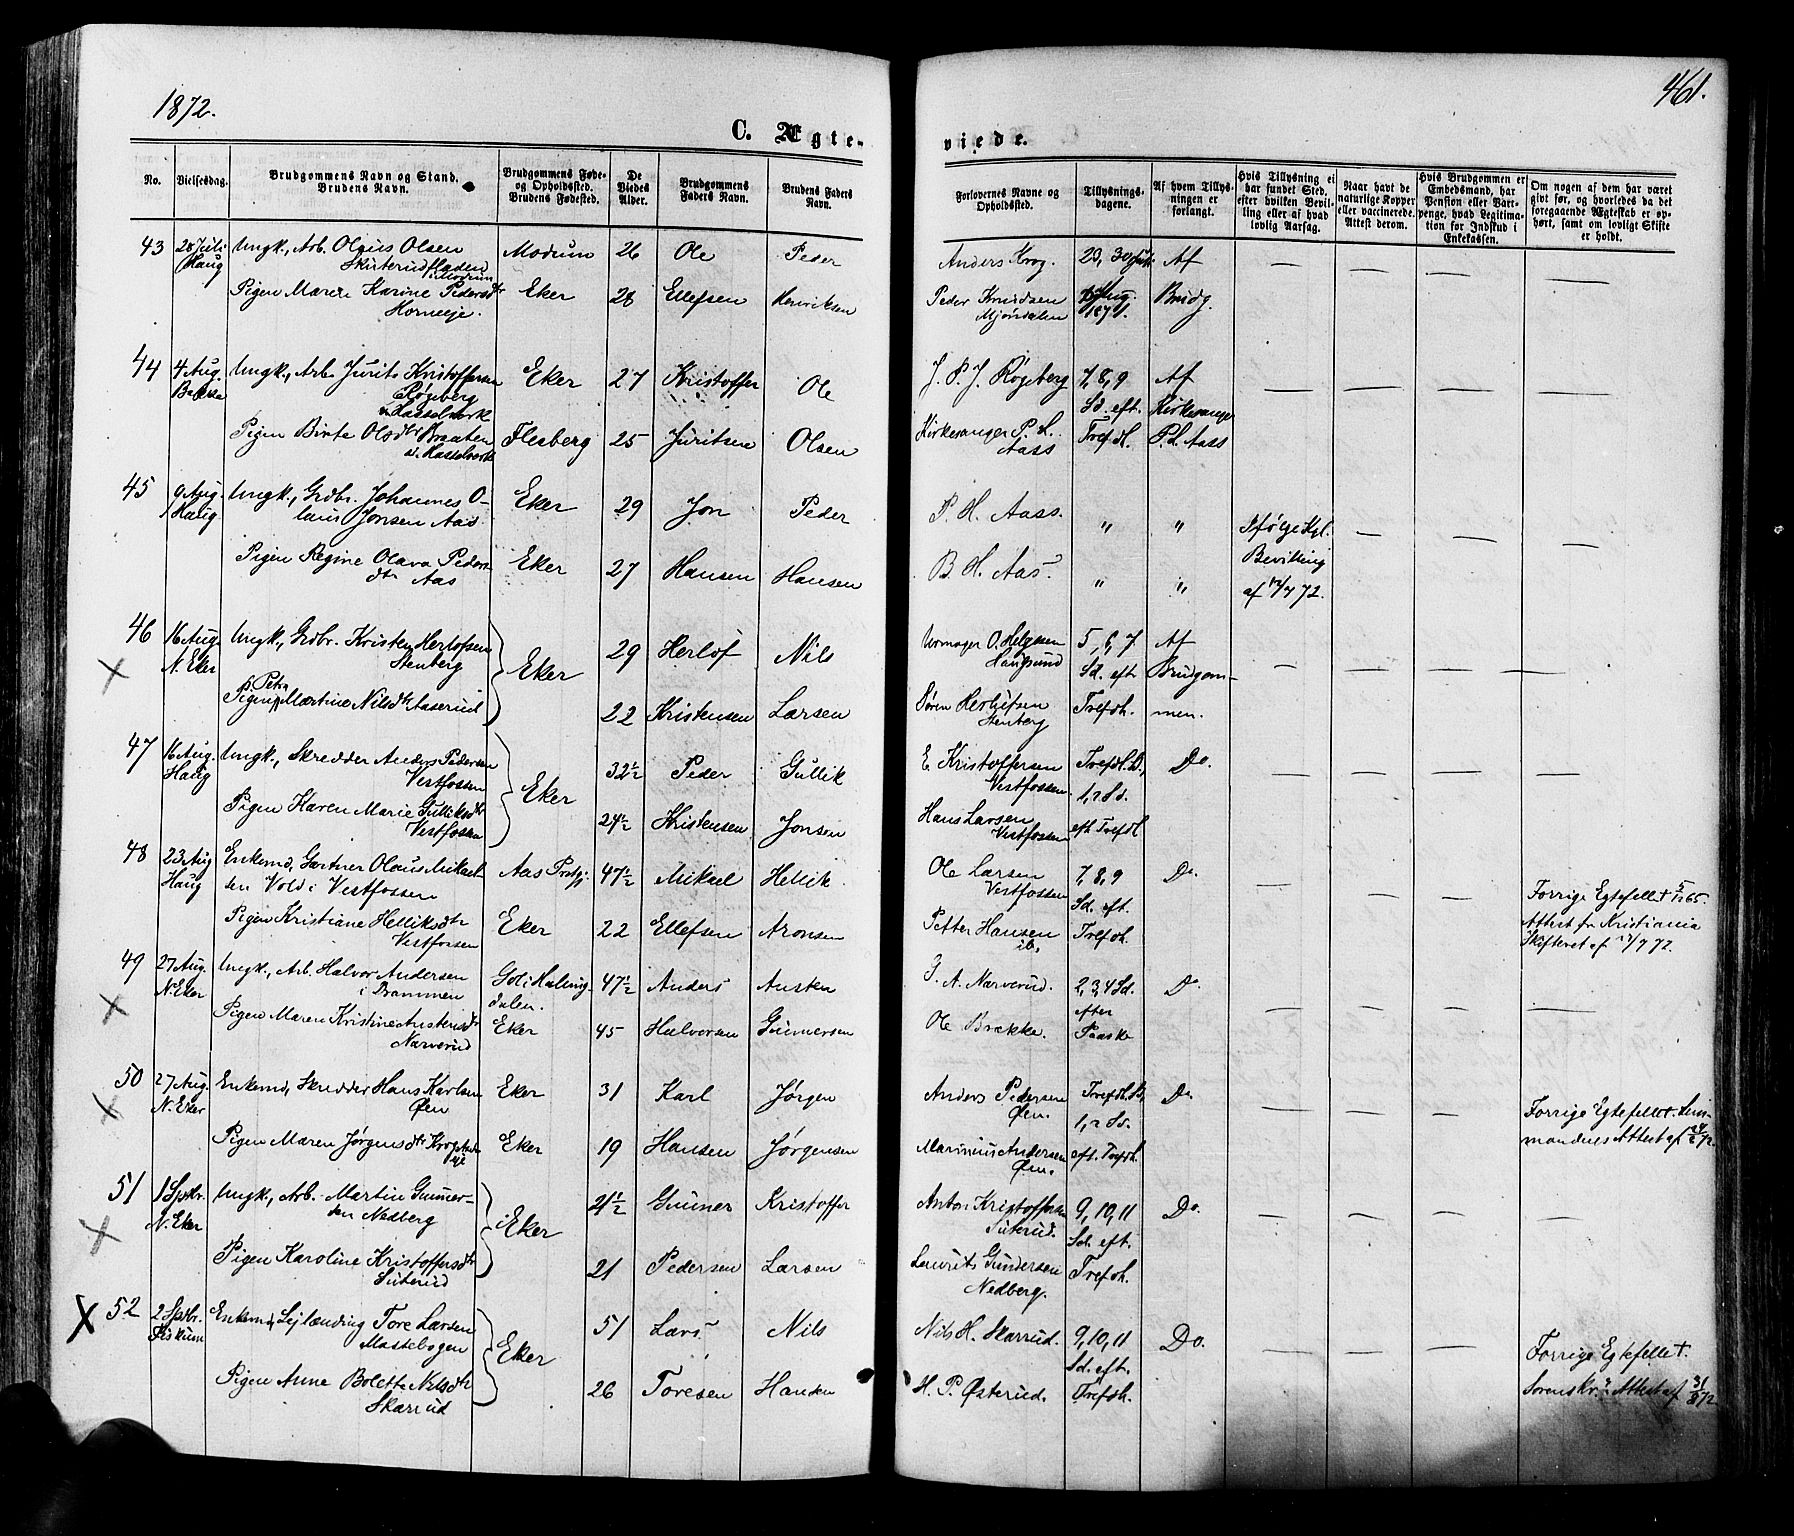 1872.
461.
C. Ægte-
viede.
No.
Vielsesdag.
Brudgommens Navn og Stand.
Brudens Navn.
Brudgommens Føde-
og Opholdssted.
Brudens Fødested.
De
Viedes
Alder.
Brudgommens
Faders Navn.
Brudens Faders
Navn.
Forlovernes Navne og
Opholdssted.
Tillysnings-
dagene.
Af hvem Tillys-
ningen er
forlangt.
Hvis Tillysning ei
har fundet Sted,
efter hvilken Bevil-
ling eller af hvad
lovlig Aarsag.
Naar havt de
naturlige Kopper
eller vaccinerede.
Attest derom.
Hvis Brudgommen er
Embedsmand, har
Pension eller Vart-
penge, hvad Legitima-
tion for Indskud i
Enkekassen.
Om nogen af dem har været
givt før, og hvorledes da det
foregaaende Ægteskab er op-
hørt, samt om lovligt Skifte
er holdt.
43 28 Juli Ungk., Arb. Olaus Olsen Modum 26 Ole Peder Anders Krog. Af
Haug Skuterudfladen
i Modum
Pigen Maren Karine Pedersdtr Eker 28 Ellefsen Henriksen Peder Knudsen 1871. Brudg.
Horneeje. Mjøndalen
44 4 Aug. Ungk., Arb. Jurits Kristoffersen Eker 27 Kristoffer Ole J. P. J. Røgeberg 7, 8, 9 Af
Bakke Røgeberg Sd. eft. Kirkesanger
v. Hasselverk
Pigen Birte Olsdtr Braaten Flesberg 25 Juritsen Olsen Kirkesanger P. L. Trefdh. P. L. Aass
v. Hasselverk Aass
45 9 Aug. Ungk., Grdbr. Johannes O- Eker 29 Jon Peder P. H. Aass. " " Ifølge Kgl.
Haug laus Jonsen Aas.
Pigen Regine Olava Peders Eker 27 Hansen Hansen B. H. Aas. " " Bevilling
dtr Aas af 72.
46 16 Aug. Ungk., Grdbr. Kristen Herlofsen Eker 29 Herlof Nils Urmager O. Helgesen 5, 6, 7 Af
N. Eker Stenberg Haugsund Sd. eft Brudgom-
Petra
Pigen Martine Nilsdtr Aaserud 22 Kristensen Larsen Søren Herlofsen Trefdh. men.
Stenberg
47 16 Aug. Ungk., Skredder Anders Pedersen Eker 32½ Peder Gullik E Kristoffersen Trefdh. D., Do.
Haug Vestfossen Vestfossen. 1, 2 Sd.
Pigen Karen Marie Gulliksdtr 24½ Kristensen Jonsen Hans Larsen eft. Trefdh
Vestfossen Vestfossen
48 23 Aug Enkemd, Gartner Olaus Mikael- Aas Prstgj. 47½ Mikael Hellik Ole Larsen 7, 8, 9 Do. Forrige Egtefelle † 65.
Haug sen Vold i Vestfossen Vestfossen Sd. eft.
Pigen Kristiane Helliksdtr Eker 22 Ellefsen Aronsen Petter Hansen Trefdh. Attest fr Kristiania
Vestfossen ib. Skifteret af 72.
49 27 Aug. Ungk., Arb. Halvor Andersen Gol i Halling- 47½ Anders Austen G. A. Narverud. 2, 3, 4 Sd. Do
N. Eker i Drammen dalen. efter
Pigen Maren Kristine Austensdtr Eker 45 Halvorsen Gunnersen Ole Brække. Paaske
Narverud
50 27 Aug. Enkemd, Skredder Hans Karlsen Eker 31 Karl Jørgen Anders Pedersen Trefdh. D., Do Forrige Egtefelle †. Lens-
N. Eker Øen Øen. 1, 2 Sd. mandens Attest af 72.
Pigen Maren Jørgensdtr Eker 19 Hansen Jørgensen Marinius Andersen eft. Trefdh.
eje Øen.
51 1 Sptbr. Ungk., Arb. Martin Gunner- Eker 21½ Gunner Kristoffer Anton Kristoffersen 9, 10, 11 Do.
N. Eker sen Nedberg Suterud. Sd. eft.
Pigen Karoline Kristoffersdtr 21 Pedersen Larsen Laurits Gundersen Trefdh.
Suterud Nedberg.
52 2 Sptbr. Enkemd, Lejlænding Tore Larsen Eker 51 Lars Nils Nils H. Skarrud. 9, 10, 11 Do. Forrige Egtefelle †.
Fiskum Mastebogen Sd. eft.
Pigen Anne Bolette Nilsdtr 26 Toresen Hansen H. P. Østerud. Trefdh. Sorenskr.s Attest af 31/8 72
Skarrud